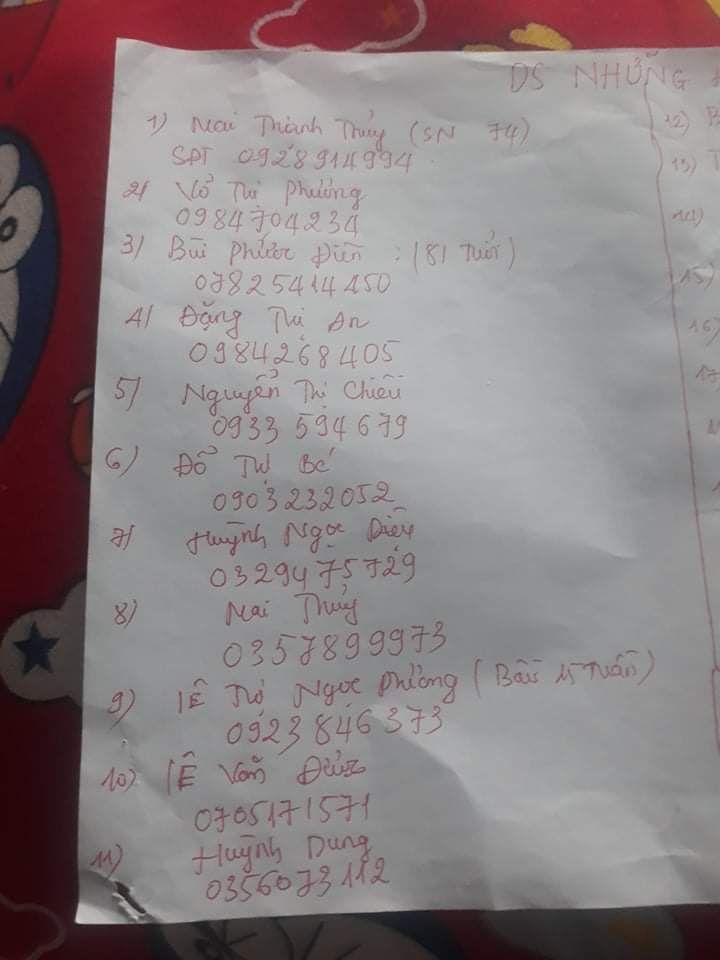 DS NHỮNG
1) Mai Thành Thủy (SN 74)
SĐT 0928914994
2) Võ Thị Phượng
0984704234
3) Bùi Phước Điền : (81 tuổi)
07825414450
4) Đặng Thị An
0984268405
5) Nguyễn Thị Chiều
0933 594 679
6) Đỗ Thị Bé
0903232052
7) Huỳnh Ngọc Diệu
0329475729
8) Mai Thủy
0357899973
9) LÊ Thị Ngọc Phượng (Bầu 15 tuần)
0923 846 373
10) LÊ Văn Đức
0705171571
11) Huỳnh Dung
0356073112
12) B
13) T
14)
15)
16)
17